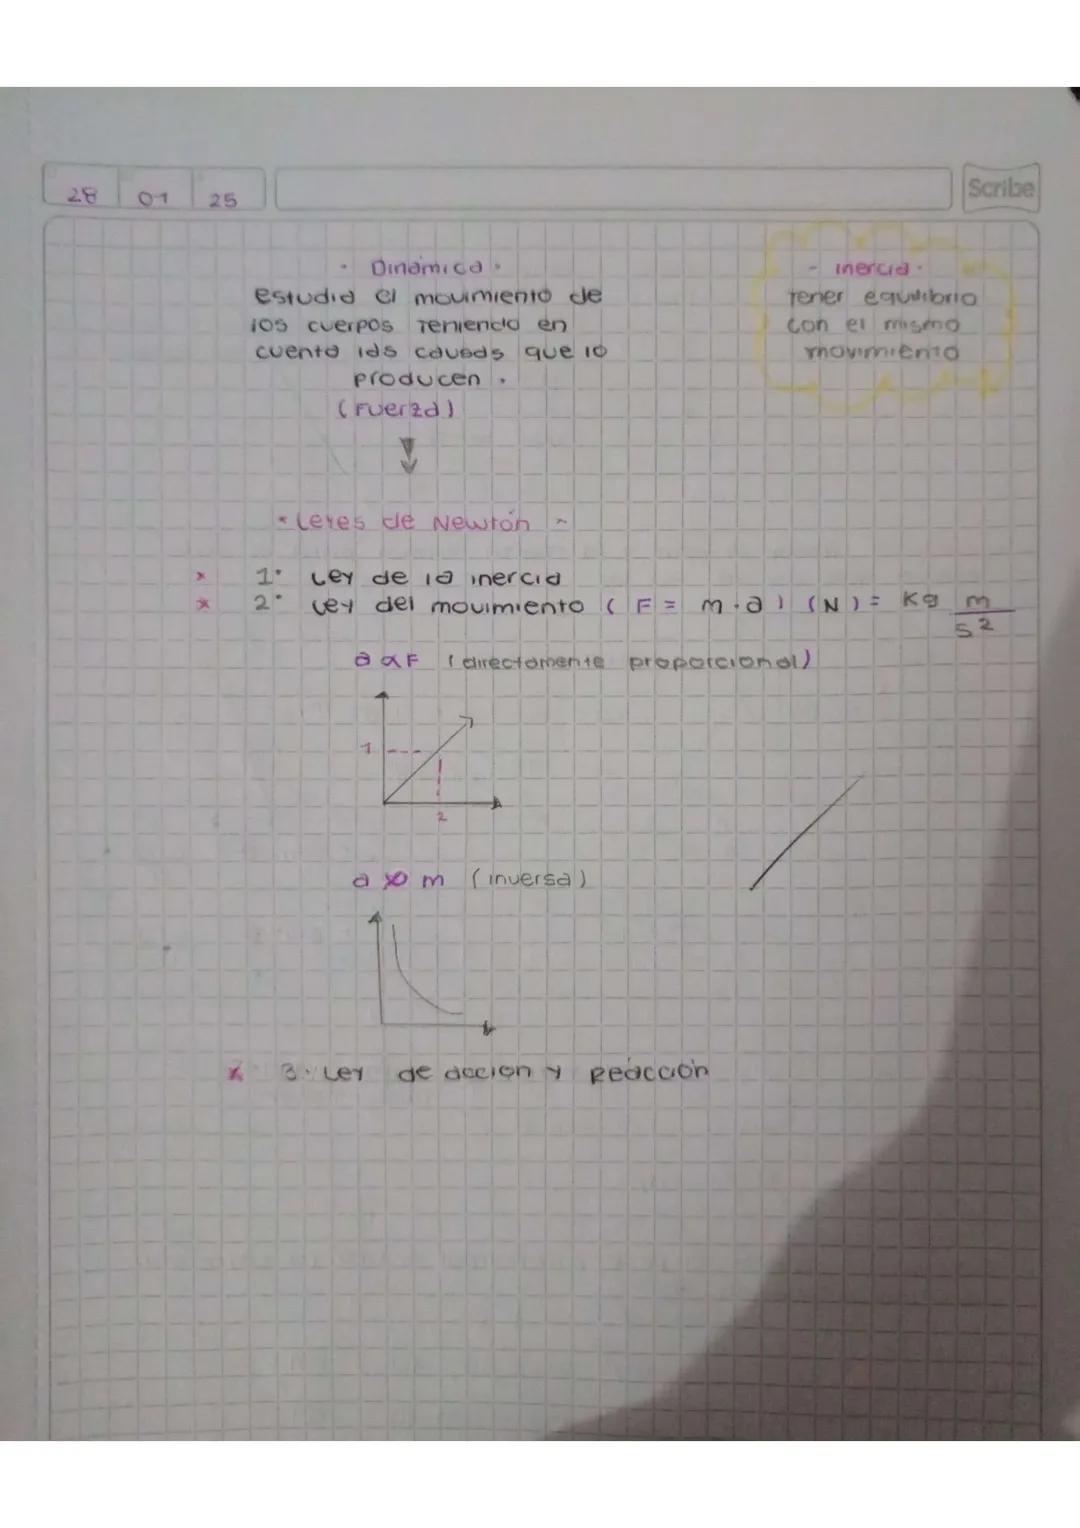 28 01 25
Scribe
· Dinámica ·
estudia el movimiento de
los cuerpos Teniendo en
cuenta las causas que lo
producen .
(Fuerza)
- inercia ·
Tener equilibrio
con el mismo
movimiento
* Leyes de Newton ~
* 1° Ley de la inercia
* 2° Ley del movimiento ( F = m · a ) (N) = Kg m
s²
a α F (directamente proporcional)
1
2
a m (inversa)
* 3. Ley de accion y Reacción